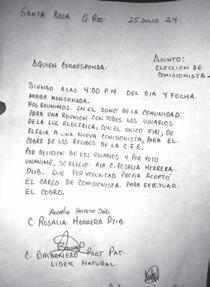 SANTA ROSA Q. ROO. 25 JULIO 24
ASUNTO:
AQUIEN CORRESPONDA. ELECCION DE
COMISIONISTA.
SIENDO ALAS 4:00 P.M DEL DIA Y FECHA.
ARRIBA MENSIONADA.
NOS REUNIMOS. EN EL DOMO DE LA COMUNIDAD.
PARA UNA REUNION CON TODOS LOS USUARIOS
DE LA LUZ ELECTRICA, CON EL UNICO FIN, DE
ELEGIR A UNA NUEVA COMISIONISTA, PARA EL
COBRO DE LOS RECIBOS DE LA C.F.E.
POR DECICION DE LOS USUARIOS Y POR VOTO
UNANIME, SE ELIGIO. ALA C. ROSALIA HERRERA.
DZIB. QUE POR VOLUNTAD PROPIA ACEPTO
EL CARGO DE COMISIONISTA. PARA EFECTUAR.
EL COBRO.
Rosalia Herrera Dzib
C. ROSALIA HERRERA DZIB.
C. POOT PAT.
LIDER NATURAL.